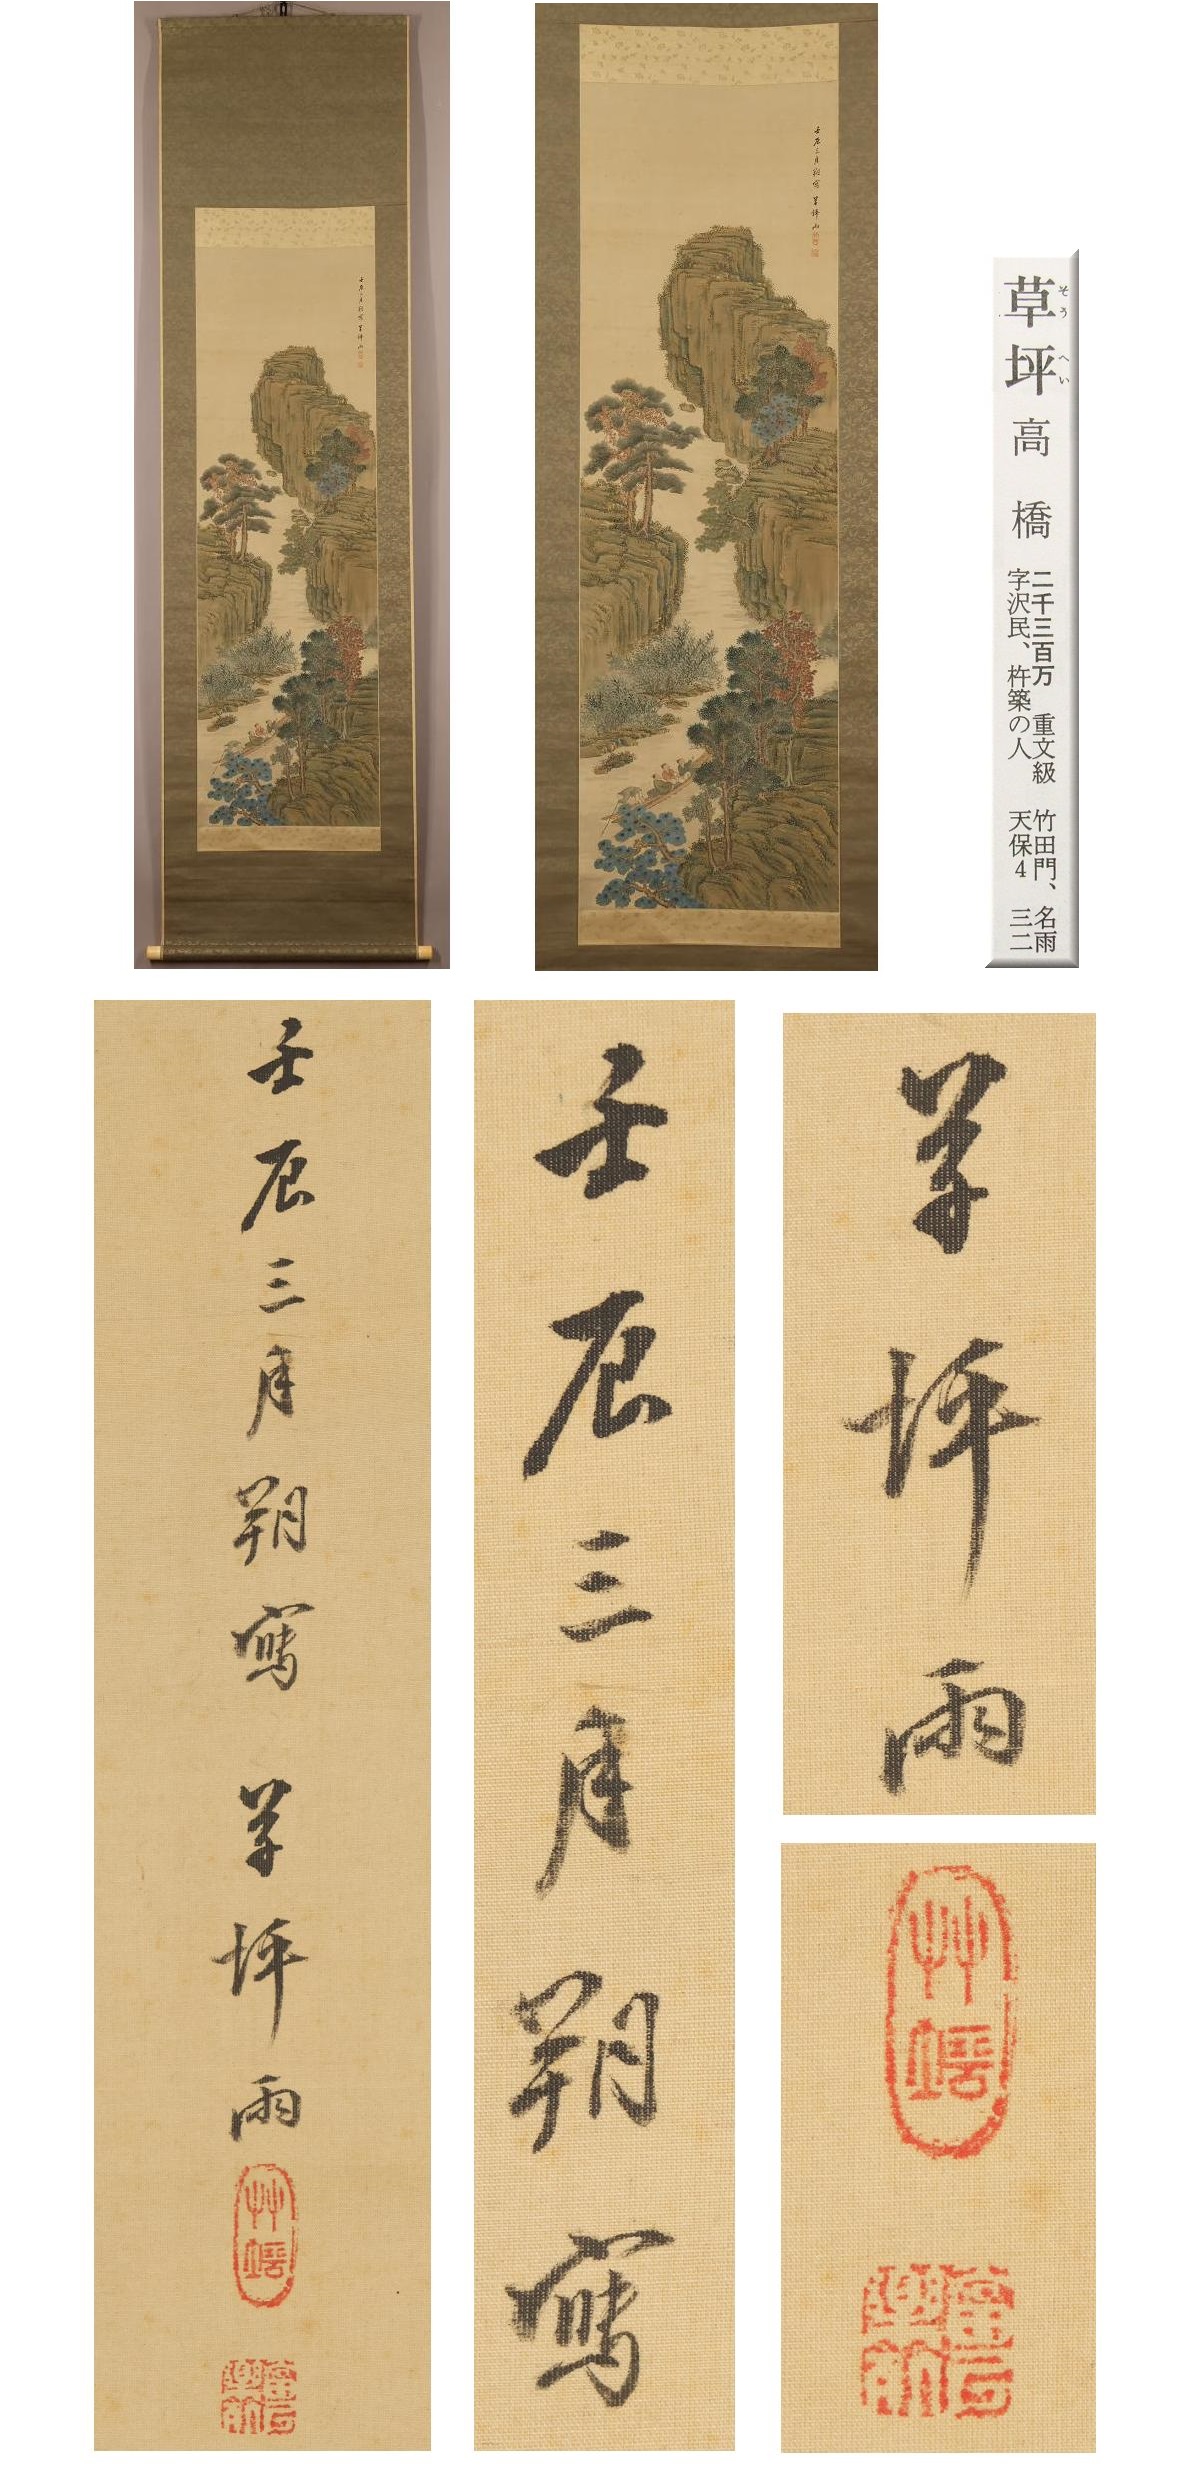 壬辰三月朔寫 草坪雨
草坪 高橋
そうへい
二千三百万 重文級 竹田門、名雨
字沢民、杵築の人 天保4 三二
壬辰三月朔寫 草坪雨
壬辰三月朔寫
草坪雨